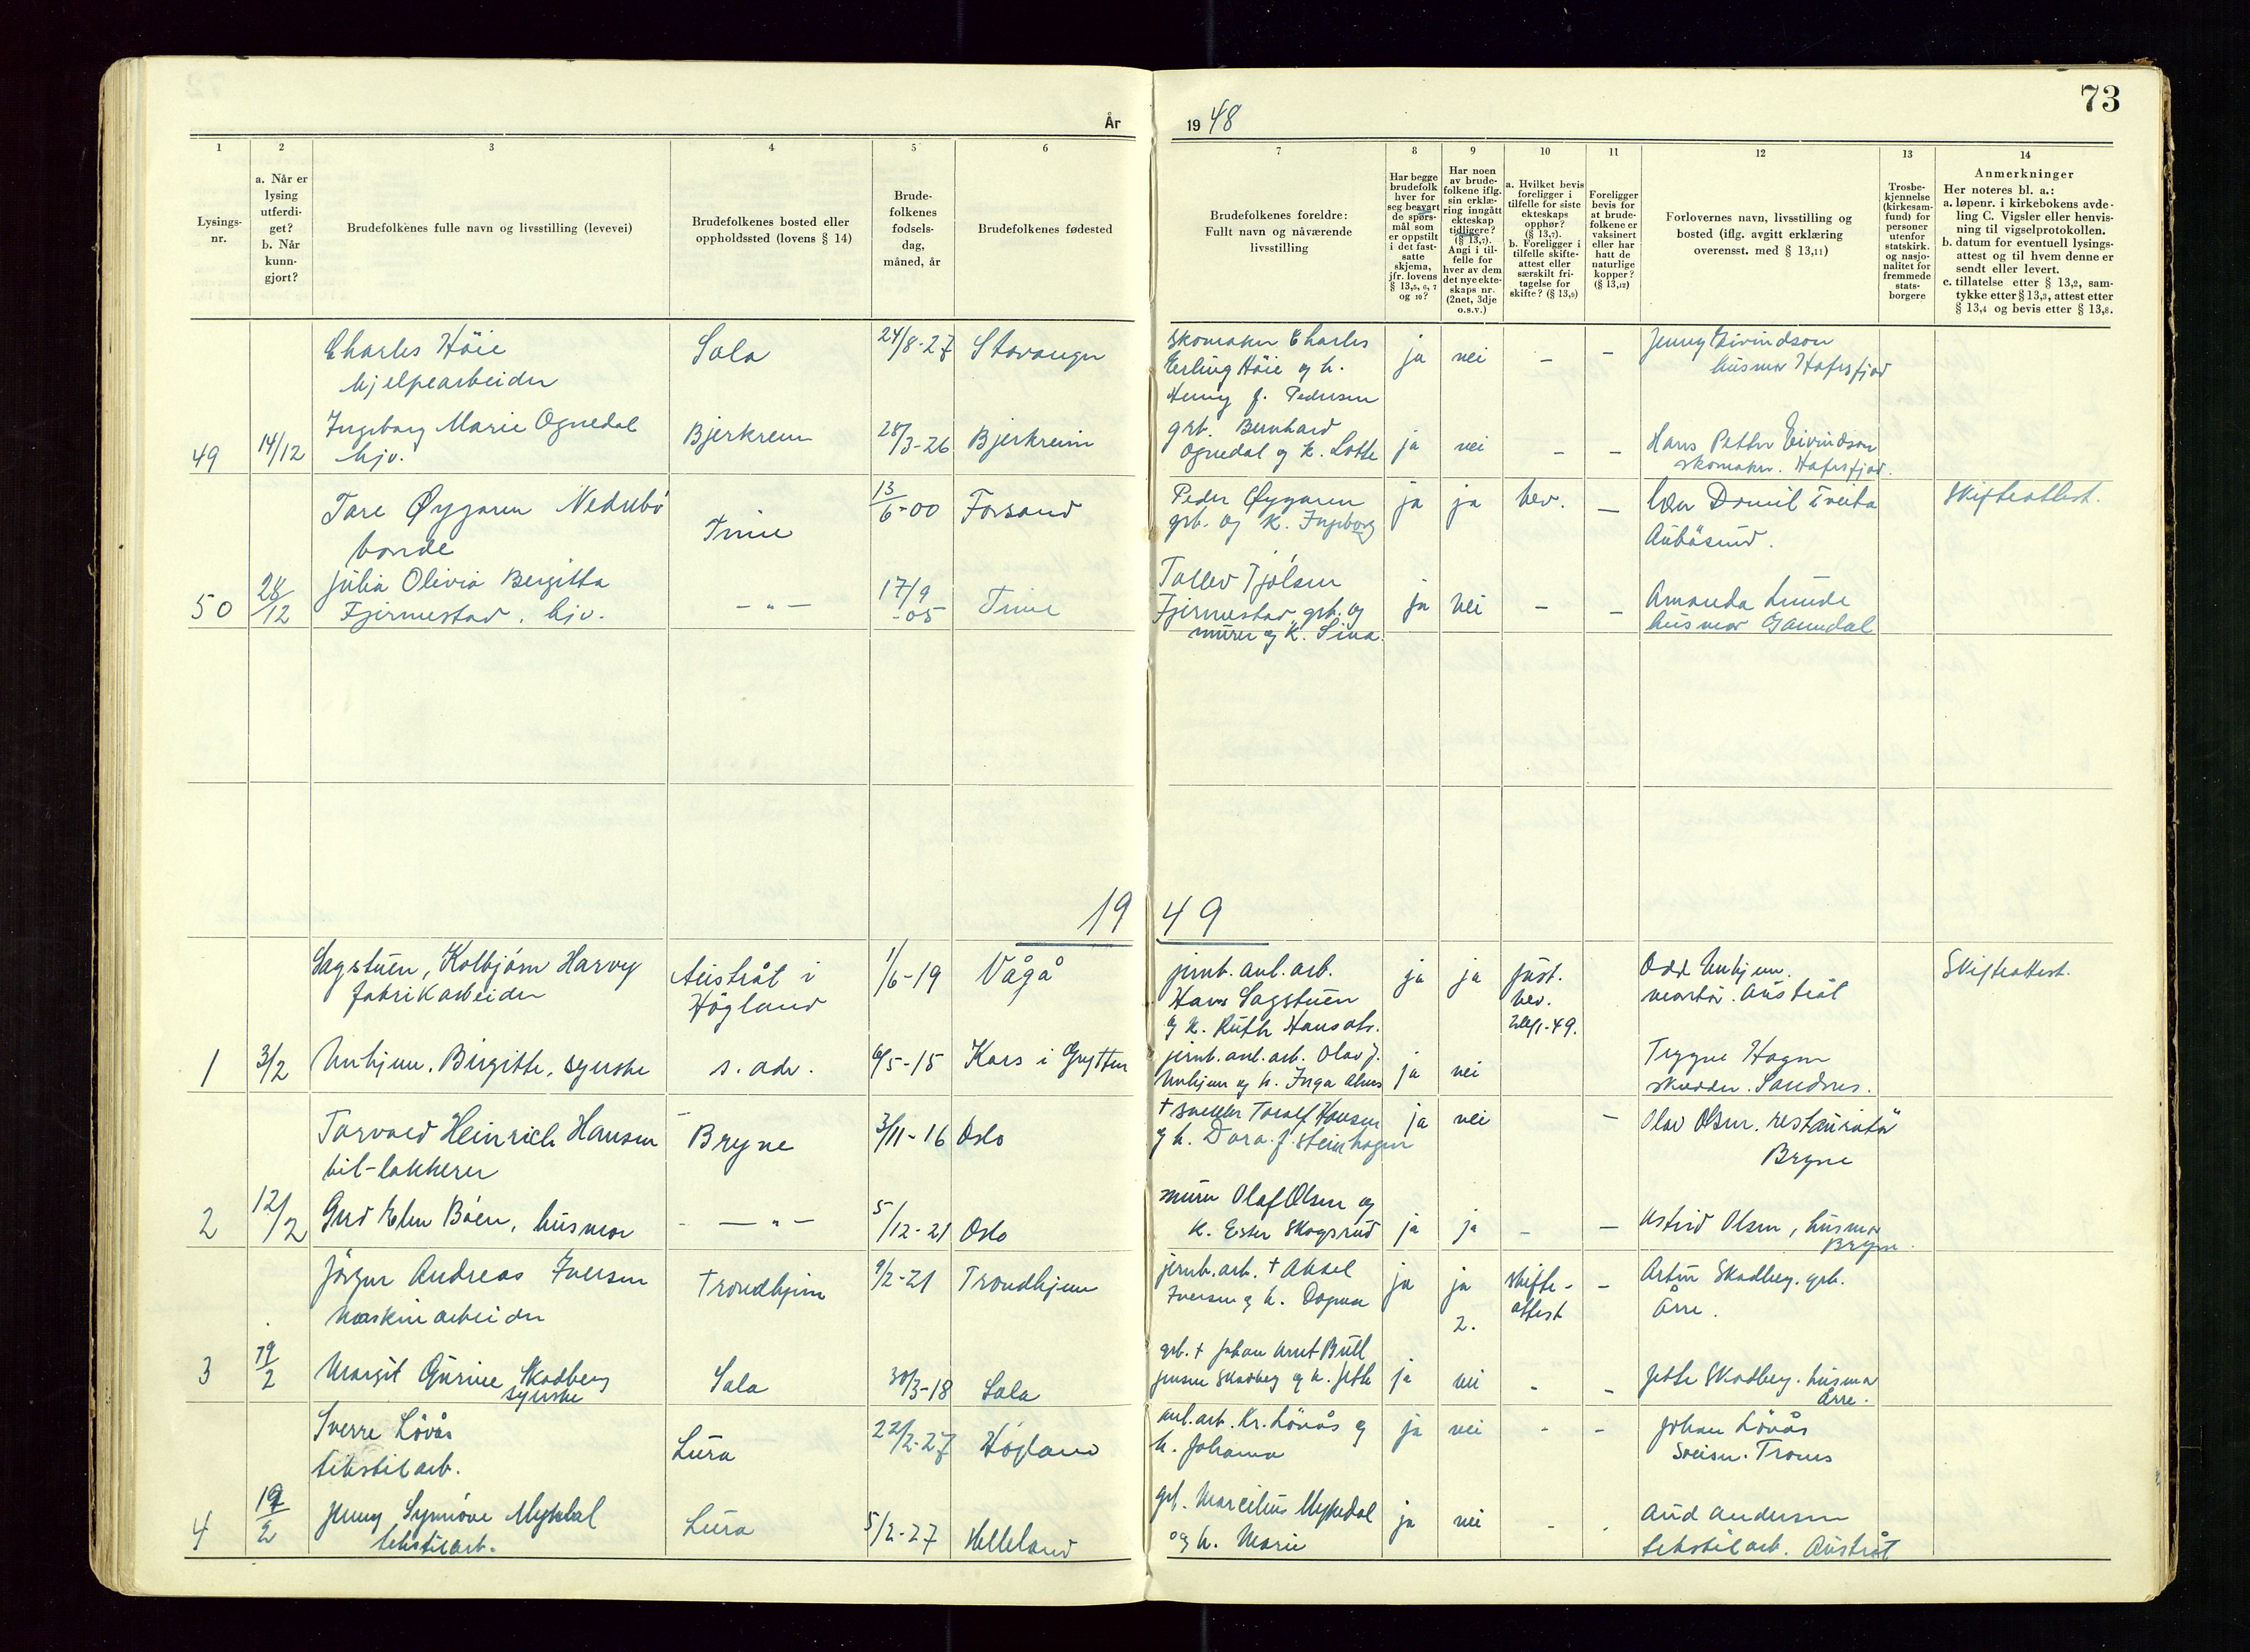 73
År
19 48
1
2
3
4
5
6
7
8
9
10
11
12
13
14
Lysings-
nr.
a. Når er
lysing
utferdi-
get?
b. Når
kunn-
gjort?
Brudefolkenes fulle navn og livsstilling (levevei)
Brudefolkenes bosted eller
oppholdssted (lovens § 14)
Brude-
folkenes
fødsels-
dag,
måned, år
Brudefolkenes fødested
Brudefolkenes foreldre:
Fullt navn og nåværende
livsstilling
Har begge
brudefolk
hver for
seg besvart
de spørs-
mål som
er oppstilt
i det fast-
satte
skjema,
jfr. lovens
§ 13,5, 6, 7
og 10?
Har noen
av brude-
folkene iflg.
sin erklæ-
ring inngått
ekteskap
tidligere?
(§ 13,7).
Angi i til-
felle for
hver av dem
det nye ekte-
skaps nr.
(2net, 3dje
o.s.v.)
a. Hvilket bevis
foreligger i
tilfelle for siste
ekteskaps
opphør?
(§ 13,7).
b. Foreligger i
tilfelle skifte-
attest eller
særskilt fri-
tagelse for
skifte? (§ 13,9)
Foreligger
bevis for
at brude-
folkene er
vaksinert
eller har
hatt de
naturlige
kopper?
(§ 13,12)
Forlovernes navn, livsstilling og
bosted (iflg. avgitt erklæring
overensst. med § 13,11)
Trosbe-
kjennelse
(kirkesam-
fund) for
personer
utenfor
statskirk.
og nasjo-
nalitet for
fremmede
stats-
borgere
Anmerkninger
Her noteres bl. a.:
a. løpenr. i kirkebokens avde-
ling C. Vigsler eller henvis-
ning til vigselprotokollen.
b. datum for eventuell lysings-
attest og til hvem denne er
sendt eller levert.
c. tillatelse etter § 13,2, sam-
tykke etter § 13,3, attest etter
§ 13,4 og bevis etter § 13,8.
Charles Höie
hjelpearbeider
Sola
24/8-27
Stavanger
skomaker Charles
Erling Höie og h.
Henny f. Pedersen
ja
nei
–
–
Jenny Eivindson
husmor Hafrsfjord
49
14/12
Ingeborg Marie Ognedal
hjv.
Bjerkreim
28/3-26
Bjerkreim
grb. Bernhard
Ognedal og k. Lotte
ja
nei
–
–
Hans Petter Eivindson
skomaker. Hafrsfjord.
Tore Øygaren Nedrebö
bonde
Time
13/6-00
Forsand
Peder Øygaren
grb. og k. Ingeborg
ja
ja
bev.
–
Daniel Tveita
Aubösund.
Skifteattest.
50
28/12
Julia Olivia Bergitta
Fjermestad. hjv.
– " –
17/9
-05
Time
Tollev Tjölsen
Fjermestad, grb. og
murer og k. Sina.
ja
nei
–
–
Amanda Lunde
husmor Ganndal
19 49
Sagstuen, Kolbjörn Harry
fabrikarbeider
Austråt i
Högland
1/6-19
Vågå
jernb. anl. arb.
Hans Sagstuen
og k. Ruth Hansdtr.
ja
ja
just.
bev.
Odd Unhjem.
Austråt
Skifteattest.
1
3/2
Unhjem, Birgitte, syerske
s. adr.
6/5-15
Kors i Grytten
jernb. anl. arb. Olav J.
Unhjem og h. Inga
ja
nei
Trygve Hagen
skredder. Sandnes.
Torvald Heinrich Hansen
bil-lakkerer
Bryne
3/11-16
Oslo
† snekker Toralf Hansen
og h. Dora f. Steinhagen
ja
nei
–
Olav Olsen. restauratör
Bryne
2
12/2
Gerd Elen Böen, husmor
– " –
5/12-21
Oslo
murer Olaf Olsen og
k. Ester Skogsrud
ja
ja
–
–
Astrid Olsen, husmor
Bryne.
Jörgen Andreas Iversen
maskinarbeider
Trondhjem
9/2-21
Trondhjem
jernb. arb. † Aksel
Iversen og h. Dagna
ja
ja
2.
skifte-
attest
–
Artur Skadberg. grb.
Årre.
3
19/2
Margit Gurine Skadberg
syerske
Sola
30/3-18
Sola
grb. † Johan Arnt Bull
Jensen Skadberg og h. Jette
ja
nei
-
–
Jette Skadberg. husmor
Årre.
Sverre Lövås
tekstilarb.
Lura
22/2-27
Högland
anl. arb. Kr. Lövås og
h. Johanna
ja
nei
-
-
Johan Lövås
Sveiser. Troms
4
19/2
Jenny Synnöve Mydal
tekstilarb.
Lura
5/2-27
Helleland
grb. Marcelius
og h. Marie
ja
nei
-
.
Aud Andersen
tekstilarb. Austråt